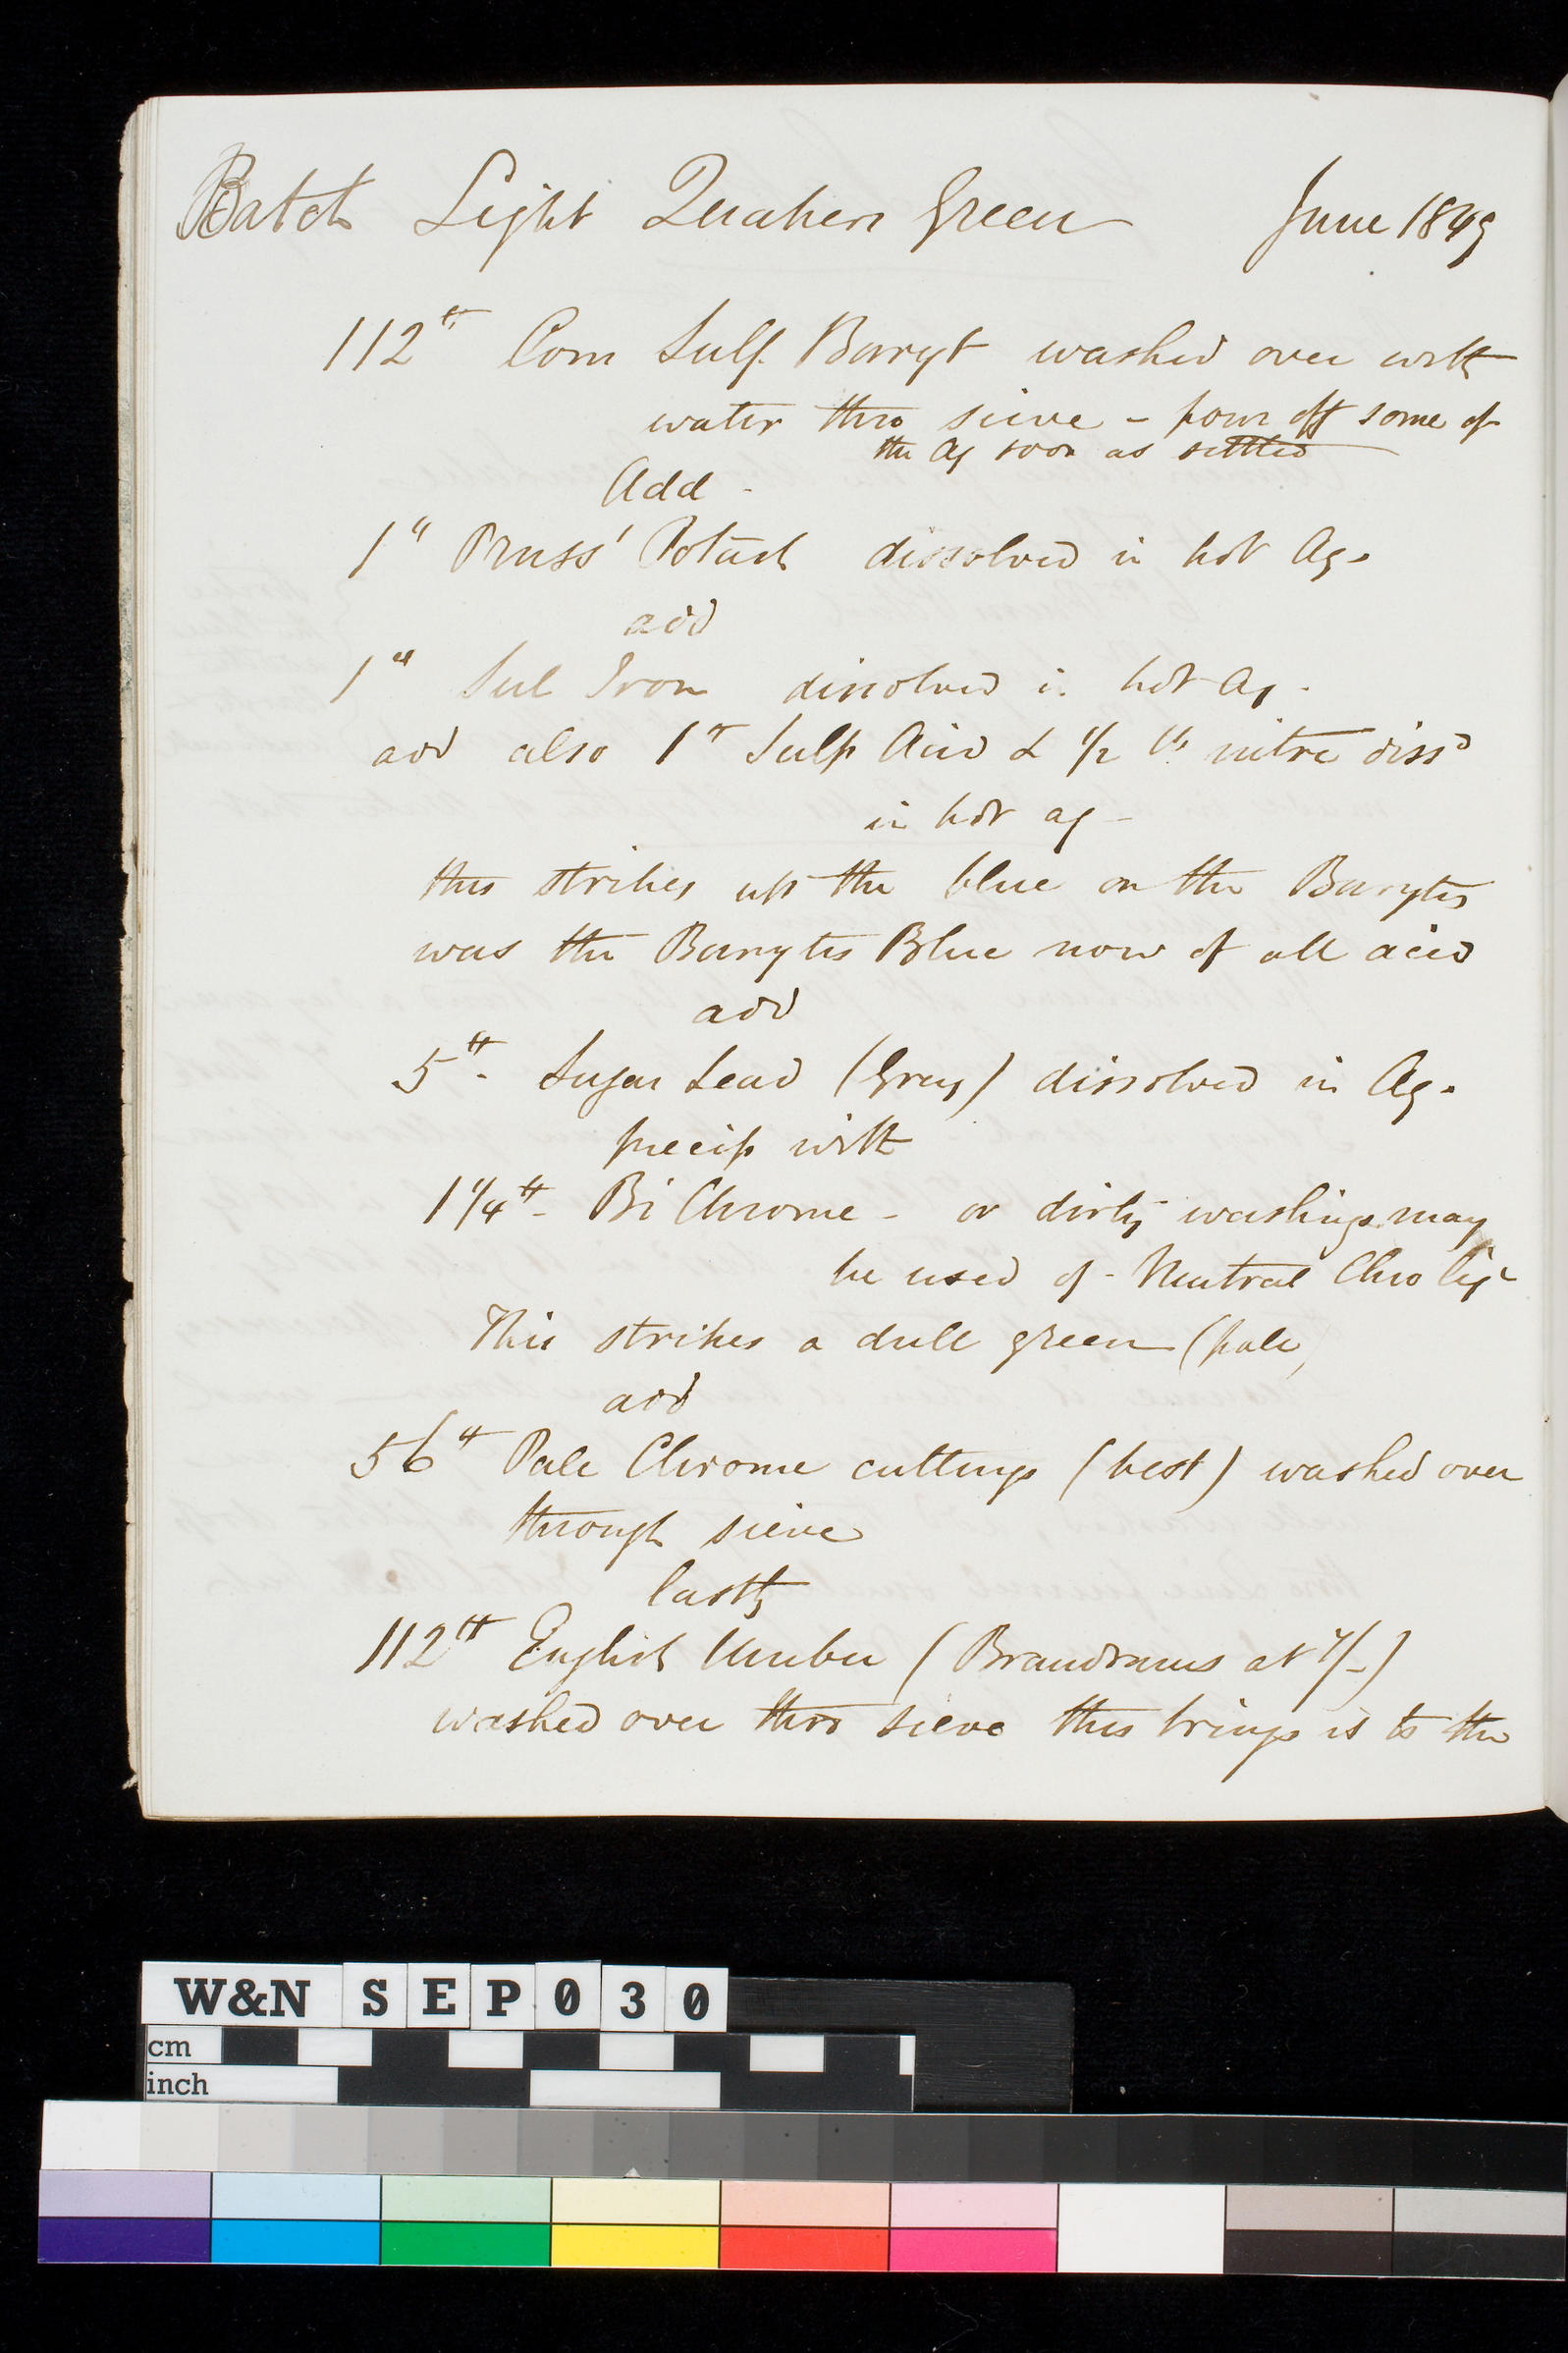 Batch Light Quaker Green June 1849
112 lb Com Sulp. Baryt washed over with
water thro sieve - pour off some of
the Aq soon as settled
Add -
1 " Pruss' Potash dissolved in hot Aq.
add
1 " Sul Iron dissolved in hot Aq.
add also 1 lb Sulp Acid & 1/2 lb nitre dissd
in hot aq -
this strikes up the blue on the Barytes
was the Barytes Blue now of all acid
add
5 lb. Sugar Lead (Grey) dissolved in Aq.
precip with
1 1/4 lb - Bi Chrome - or dirty washings may
be used of - Neutral Chro Liqr
This strikes a dull green (pale)
add
56 lb Pale Chrome cuttings (best) washed over
through sieve
lastly
112 lb English Umber (Brandrams at 7/-)
washed over thro sieve this brings is to the
W&N SEP030
cm
inch